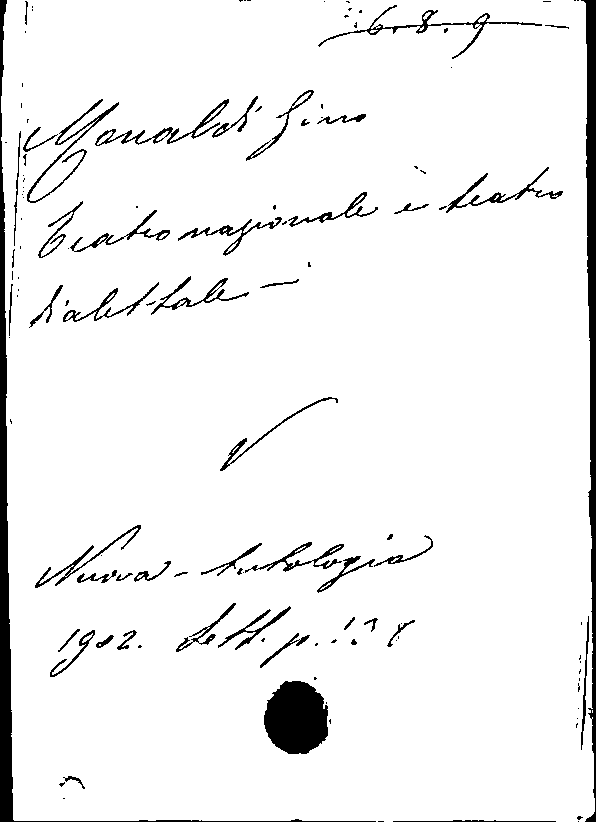 6.8.9
Monaldi Gino
Teatro nazionale e teatro
dialettale -
Nuova - Antologia
1902. Sett. p. 138